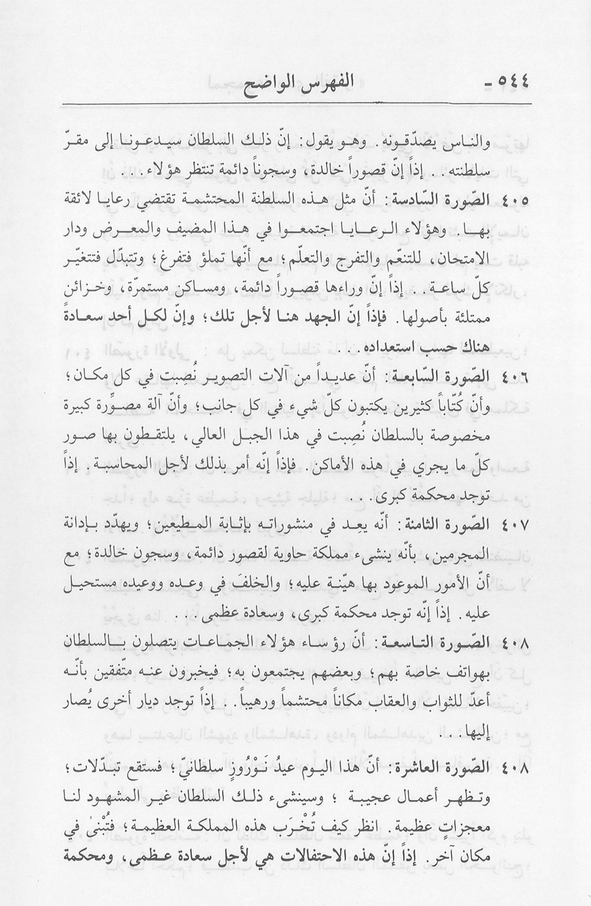 ٥٤٤ - الفهرس الواضح
والناس يصدّقونه. وهو يقول: إنّ ذلك السلطان سيدعونا إلى مقرّ
سلطنته.. إذاً إنّ قصوراً خالدة، وسجوناً دائمة تنتظر هؤلاء...
٤٠٥ الصّورة السّادسة: أنّ مثل هذه السلطنة المحتشمة تقتضي رعايا لائقة
بها. وهؤلاء الرعايا اجتمعوا في هذا المضيف والمعرض ودار
الامتحان، للتنعّم والتفرج والتعلّم؛ مع أنّها تملؤ فتفرغ؛ وتتبدّل فتتغيّر
كلّ ساعة.. إذاً إنّ وراءها قصوراً دائمة، ومساكن مستمرّة، وخزائن
ممتلئة بأصولها. فإذاً إنّ الجهد هنا لأجل تلك؛ وإنّ لكل أحد سعادةً
هناك حسب استعداده...
٤٠٦ الصّورة السّابعة: أنّ عديداً من آلات التصوير نصِبت في كل مكان؛
وأنّ كُتّاباً كثيرين يكتبون كلّ شيء في كل جانب؛ وأنّ آلة مصوِّرة كبيرة
مخصوصة بالسلطان نُصِبت في هذا الجبل العالي، يلتقطون بها صور
كلّ ما يجري في هذه الأماكن. فإذاً إنّه أمر بذلك لأجل المحاسبة. إذاً
توجد محكمة كبرى...
٤٠٧ الصّورة الثامنة: أنّه يعِد في منشوراته بإثابة المطيعين؛ ويهدّد بإدانة
المجرمين، بأنّه ينشىء مملكة حاوية لقصور دائمة، وسجون خالدة؛ مع
أنّ الأمور الموعود بها هيّنة عليه؛ والخلفَ في وعده ووعيده مستحيل
عليه. إذاً إنّه توجد محكمة كبرى، وسعادة عظمى...
٤٠٨ الصّورة التاسعة: أنّ رؤساء هؤلاء الجماعات يتصلون بالسلطان
بهواتف خاصة بهم؛ وبعضهم يجتمعون به؛ فيخبرون عنه متّفقين بأنّه
أعدّ للثواب والعقاب مكاناً محتشماً ورهيباً.. إذاً توجد ديار أخرى يُصار
إليها...
٤٠٨ الصّورة العاشرة: أنّ هذا اليوم عيدُ نَوْرُوزٍ سلطانيّ؛ فستقع تبدّلات؛
وتظهر أعمال عجيبة ؛ وسينشىء ذلك السلطان غير المشهود لنا
معجزاتٍ عظيمة. انظر كيف تُخْرَب هذه المملكة العظيمة؛ فتُبْنىٰ في
مكان آخر. إذاً إنّ هذه الاحتفالات هي لأجل سعادة عظمى، ومحكمة